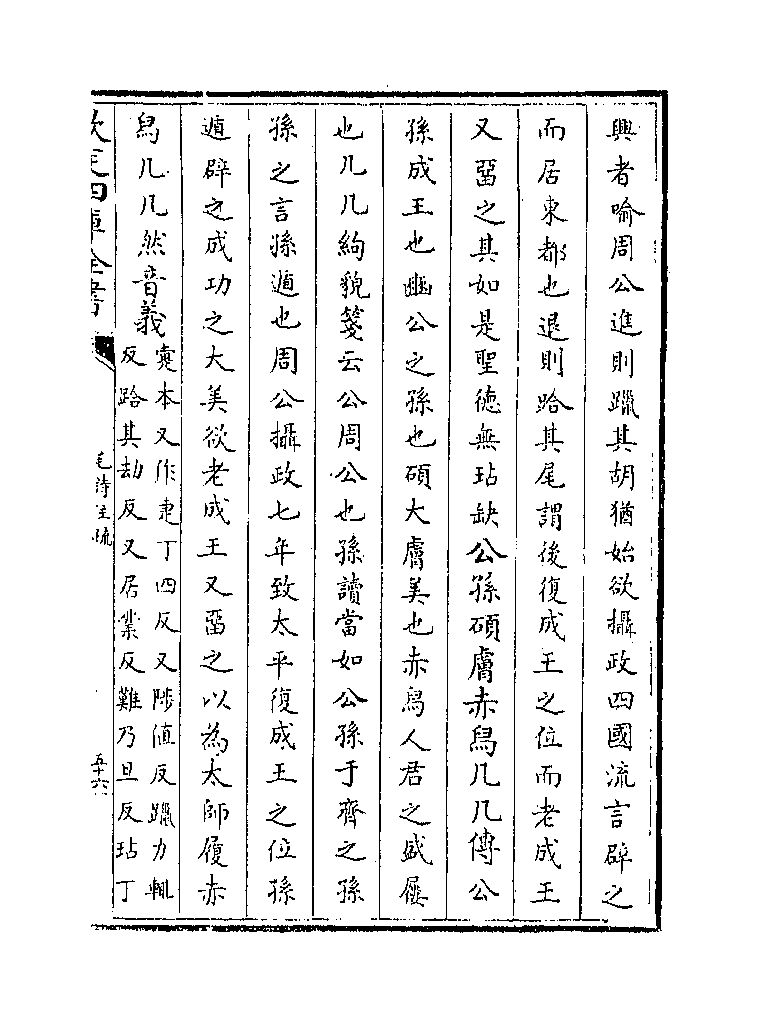 興者喻周公進則躐其胡猶始欲攝政四國流言辟之
而居東都也退則跲其尾謂後復成王之位而老成王
又畱之其如是聖德無玷缺公孫碩膚赤舄几几傳公
孫成王也豳公之孫也碩大膚美也赤舄人君之盛屨
也几几絇貌箋云公周公也孫讀當如公孫于齊之孫
孫之言孫遁也周公攝政七年致太平復成王之位孫
遁辟之成功之大美欲老成王又畱之以為太師履赤
舄几几然音義疐本又作疌丁四反又陟值反躐力輒
反跲其劫反又居業反難乃旦反玷丁
欽定四庫全書
毛詩注疏
五十六